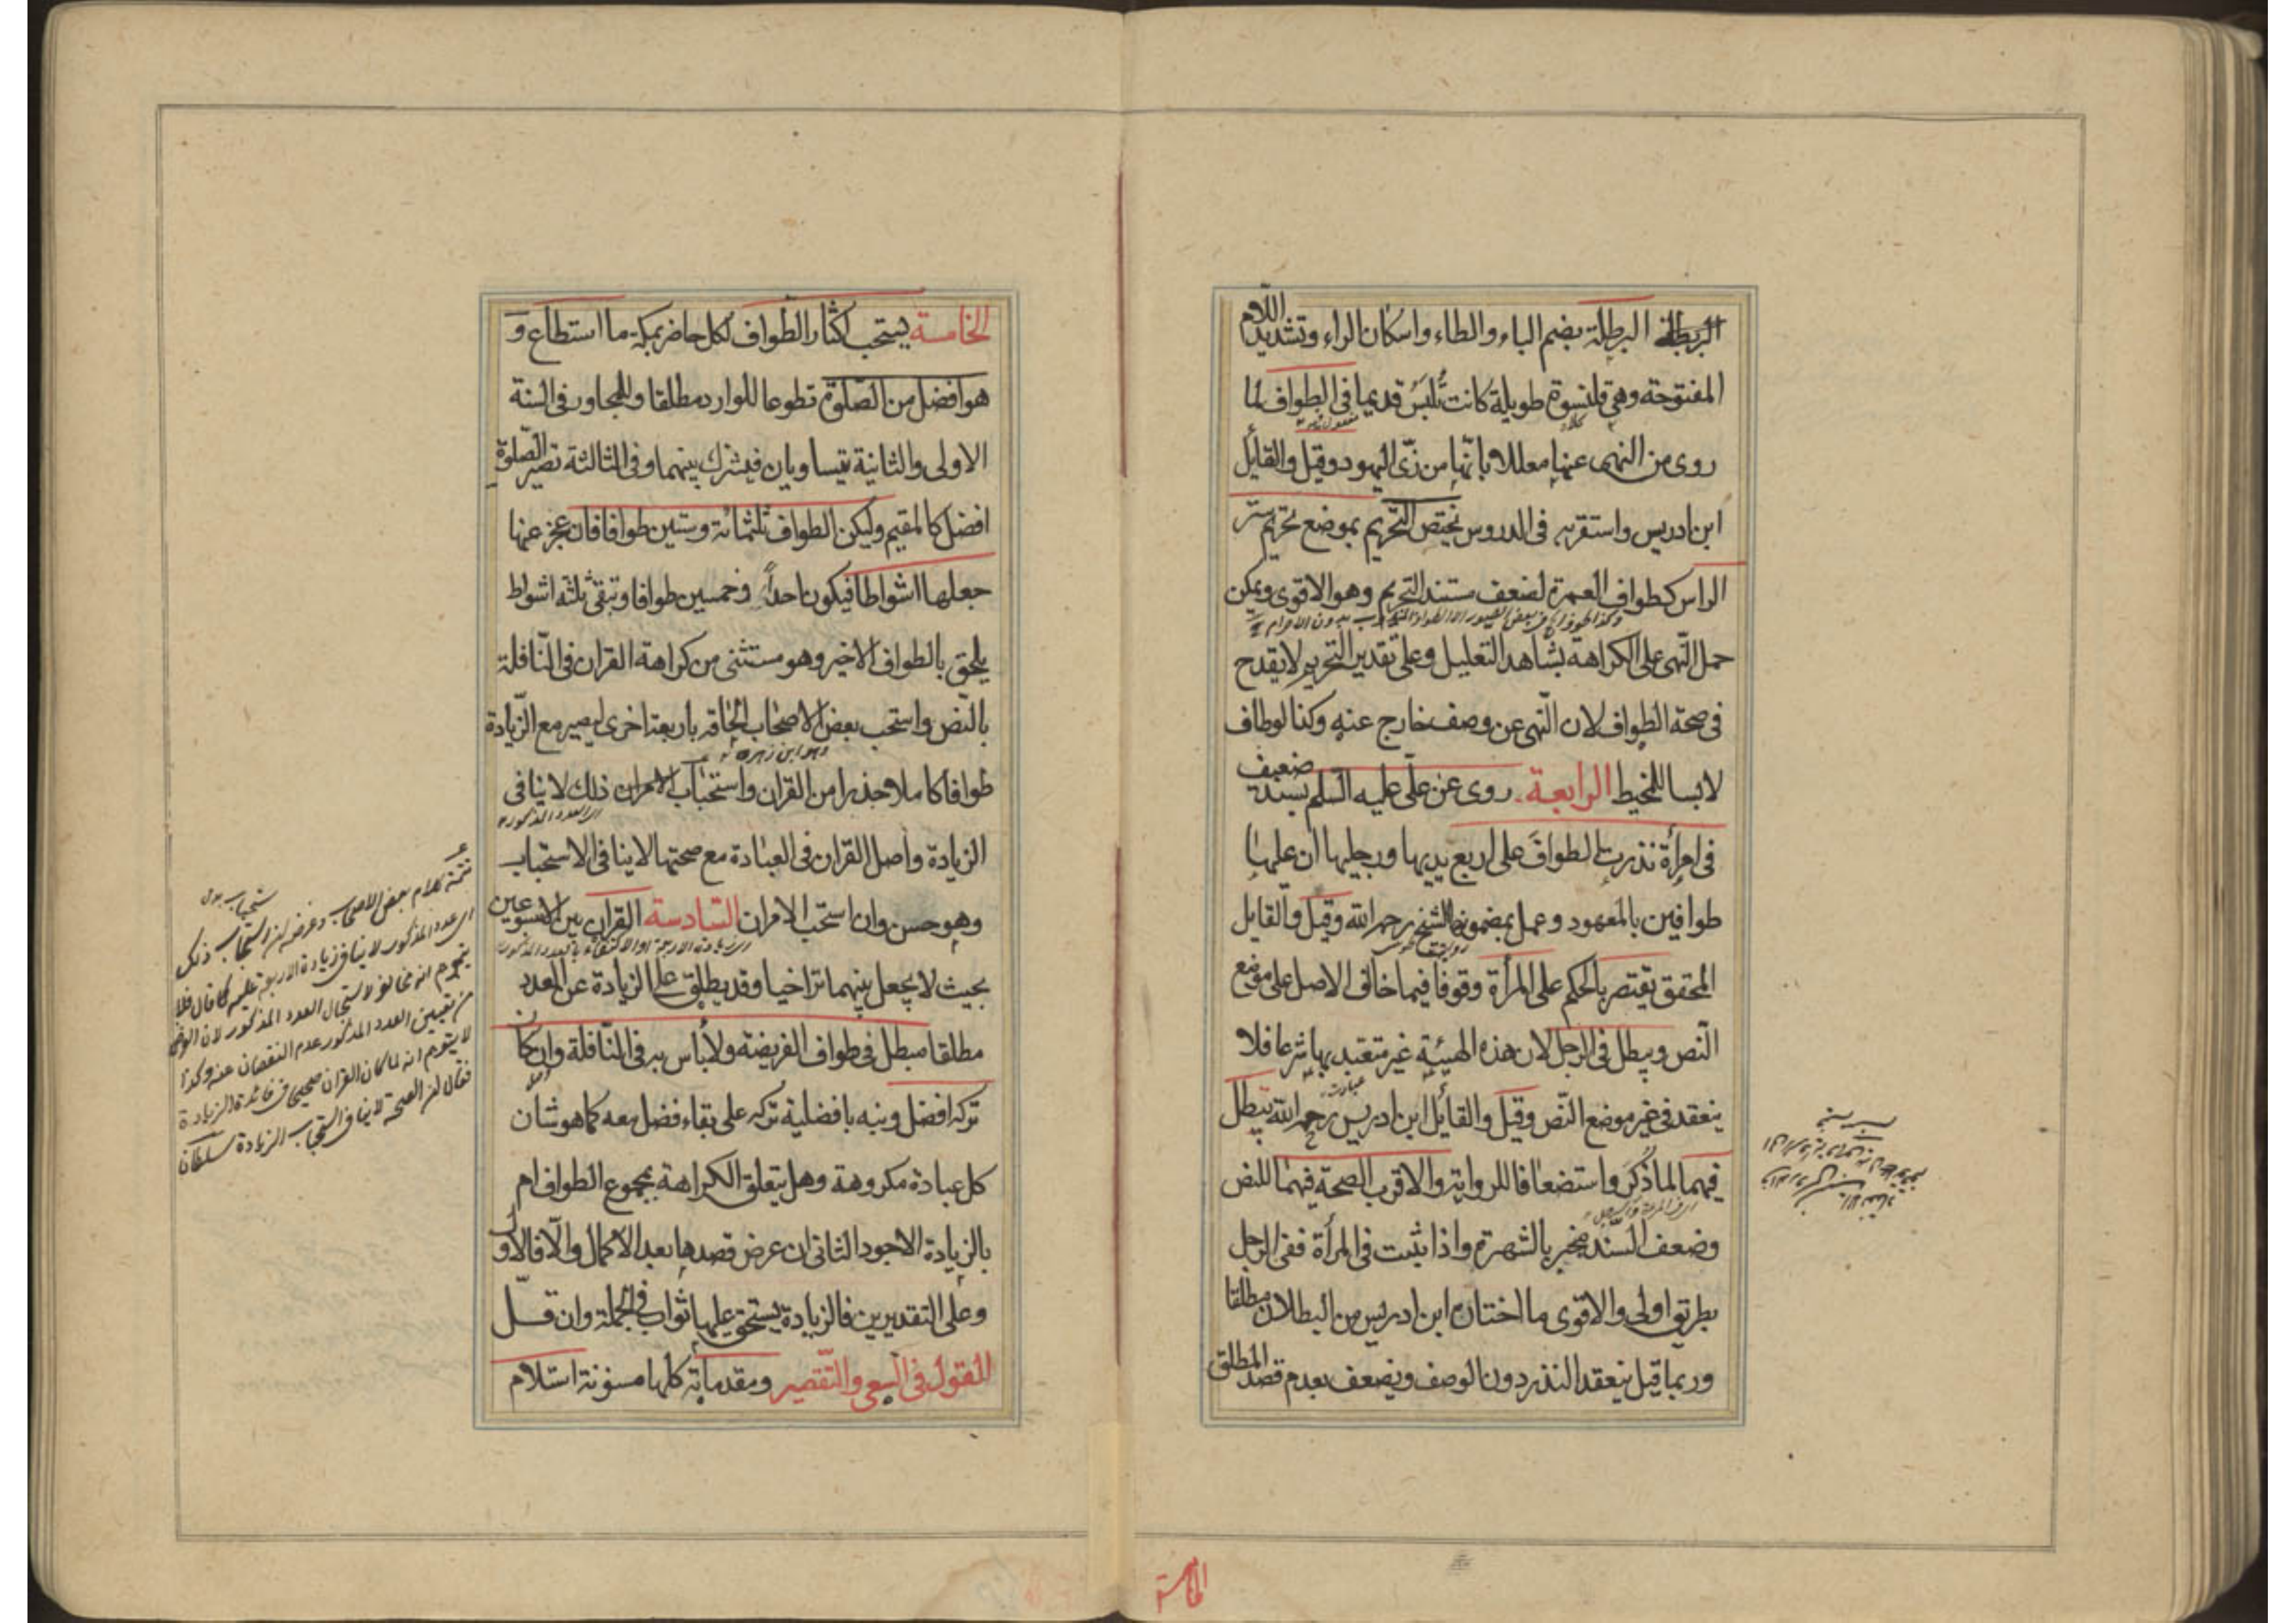 البرطلة البرطلة بضم الباء والطاء واسكان الراء وتشديد اللام
المفتوحة وهي قلنسوة طويلة كانت تُلبَسُ قديما في الطواف لما
روى من النهى عنها معللا بانّها من زىّ اليهود وقيل والقائل
ابن ادريس واستقربه في الدروس يختص التحريم بموضع تحريم ستر
الراس كطواف العمرة لضعف مستند التحريم وهو الاقوى ويمكن
حمل النّهى على الكراهة بشاهد التعليل وعلى تقدير التحريم لا يقدح
في صحة الطواف لان النّهى عن وصف خارج عنه وكذا لو طاف
لابسا للمخيط الرابعة روى عن على عليه السلم بسند ضعيف
في امرأة نذرت الطوافَ على اربع يديها ورجليها ان عليها
طوافين بالمعهود وعمل بمضمونها الشيخ رحمه الله وقيل والقايل
المحقق يقتصر بالحكم على المرأة وقوفا فيما خالف الاصل على موضع
النّص ويبطل في الرجل لان هذه الهيئة غير متعبد بها شرعا فلا
ينعقد في غير موضع النّص وقيل والقائل ابن ادريس رحمه الله يبطل
فيهما لما ذُكِرَ واستضعافا للرواية والاقرب الصحة فيهما للنص
وضعف السّند منجبر بالشهرة واذا ثبت في المرأة ففى الرجل
بطريق اولى والاقوى ما اختاره ابن ادريس من البطلان مطلقا
وربما قيل ينعقد النذر دون الوصف ويضعف بعدم قصد المطلق
الخامسة
الخامسة يستحب اكثار الطّواف لكل حاضر بمكة ما استطاع و
هو افضل من الصّلوة تطوعا للوارد مطلقا وللمجاور في السنة
الاولى والثانية يتساويان فيشرك بينهما وفي الثالثة تصير الصّلوة
افضل كالمقيم وليكن الطواف ثلثمائة وستين طوافا فان عجز عنها
جعلها اشواطا فيكون احداً وخمسين طوافا وتبقى ثلثه اشواط
يلحق بالطواف الاخير وهو مستثنى من كراهة القران في النّافلة
بالنّص واستحب بعض الاصحاب الحاقه باربعة اخرى ليصير مع الزّيادة
وهو ابن زهره
طوافا كاملا حذرا من القران واستحباب الامران ذلك لا ينافى
الزيادة واصل القران في العبادة مع صحتها لا ينافى الاستحباب
وهو حسن وان استحب الامران السّادسة القران بين الاسبوعين
بحيث لا يجعل بينهما تراخيا وقد يطلق على الزيادة عن العدد
مطلقا مبطل في طواف الفريضة ولا بأس به في النّافلة وان كان
تركه افضل وينبه بافضلية تركه على بقاء فضل معه كما هو شان
كل عبادة مكروهة وهل يتعلق الكراهة بمجموع الطواف ام
بالزيادة الاجود الثانى ان عرض قصدها بعد الاكمال والّا فالاول
وعلى التقديرين فالزيادة يستحق عليها ثواب في الجملة وان قلّ
القول في السعى والتّقصير ومقدماته كلها مسنونة استلام
تتمة كلام بعض الاصحاب وغرضه ان استحباب ذلك
العدد المذكور لا ينافى زيادة الاربعة عليه كما قال فلا
يتوهم انه مخالف لاستحباب العدد المذكور لان الغرض
من تعيين العدد المذكور عدم النقصان عنه وكذا
لا يتوهم انه لما كان القران صحيحا فائدة الزيادة
فقال ان الصحة لا ينافى استحباب الزيادة سلطان